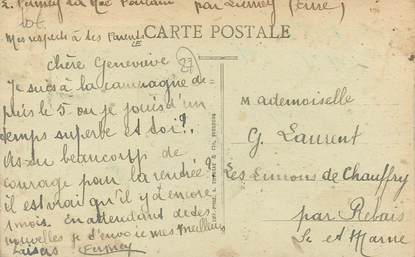 par Lumey (Eure)
Mes respects à tes Parents
CARTE POSTALE
27
chère Geneviève
Je suis à la campagne de
puis le 5 ou je jouis d'un
temps superbe et toi?
As-tu beaucoup de
courage pour la rentrée?
il est vrai qu'il y a encore
1 mois. En attendant de tes
nouvelles je t'envoie mes meilleurs
baisers
Mademoiselle
G. Laurent
Les Limons de Chauffry
par Rebais
Se et Marne